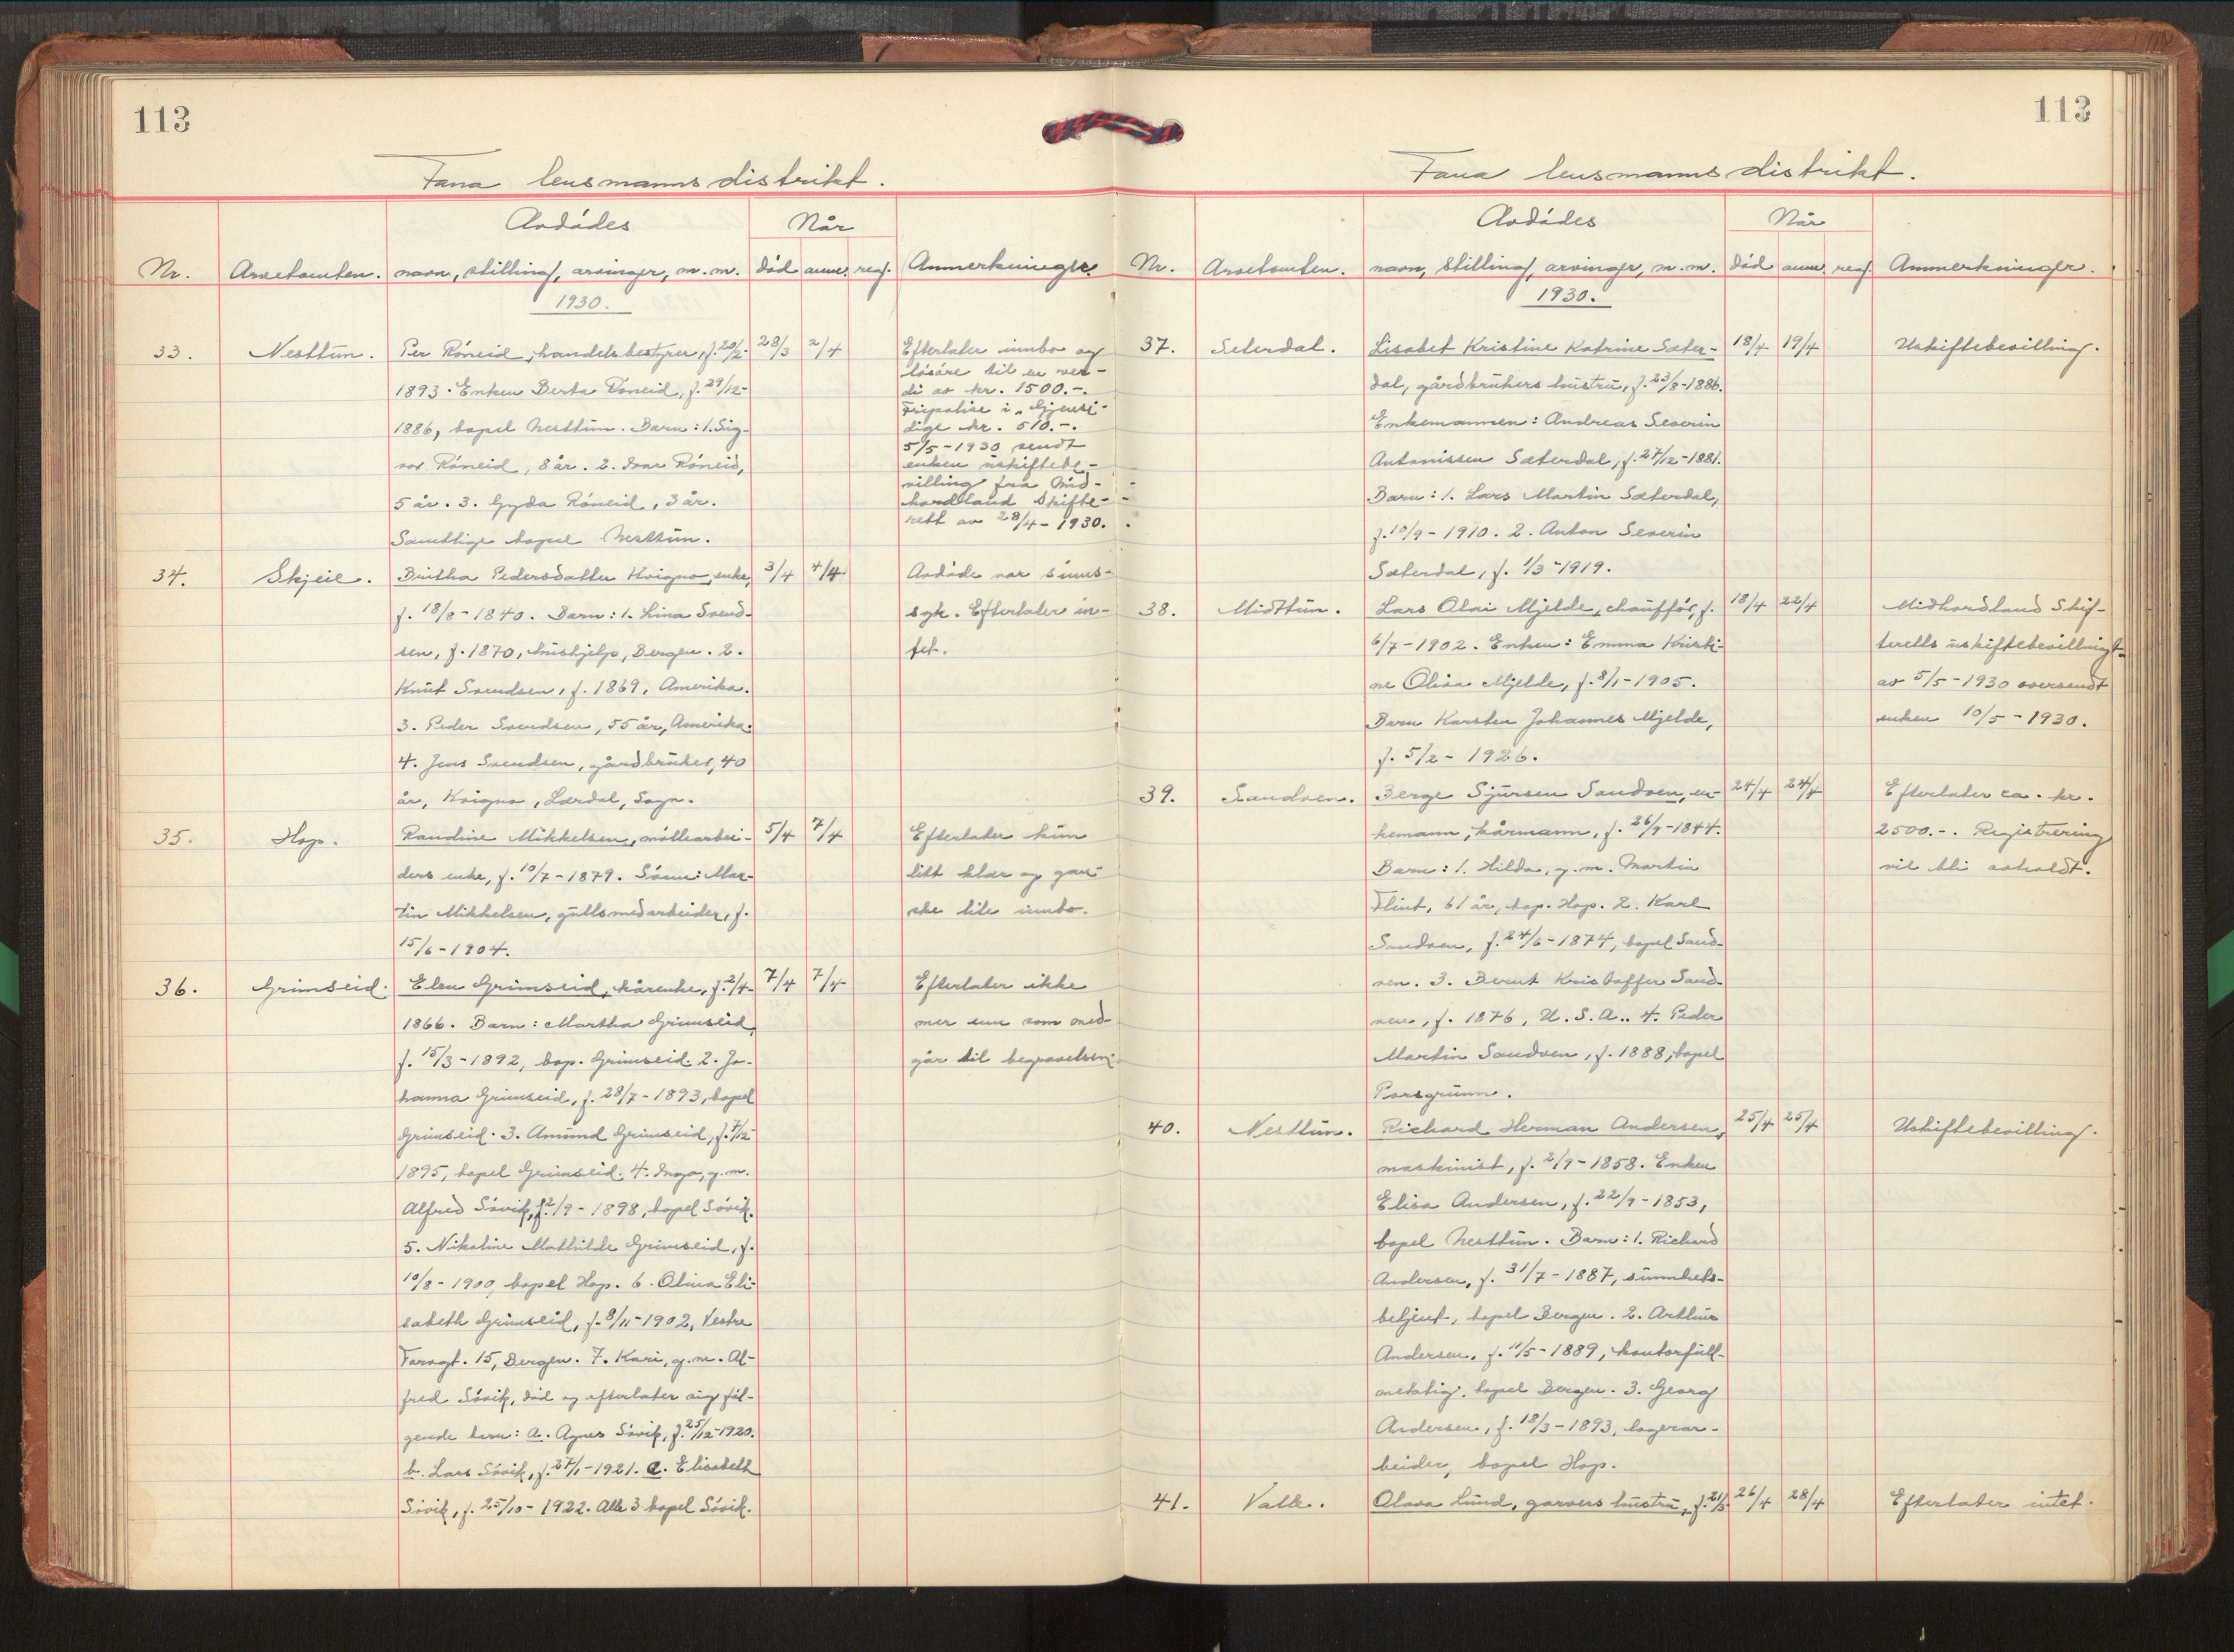 113
Fana lensmannsdistrikt.
Avdødes
Når
Nr. Arvetomten. navn, stilling, arvinger, m.m. død anm. reg. Anmerkninger.
1930.
33. Nesttun. Per Röneid, handelsbestyrer, f. 20/2- 28/3 2/4 Efterlater innbo og
løsøre til en ver-
1893. Enken Berta Röneid, f. 29/12-
di av kr. 1500.-.
Fripolise i „Gjensi-
1886, bopel Nesttun. Barn: 1. Sig-
dige kr. 510.-.
5/5-1930 sendt
vor Röneid, 8 år. 2. Ivar Röneid,
enken uskiftebe-
villing fra Mid-
5 år. 3. Gyda Röneid, 3 år.
hordland Skifte-
rett av 28/4-1930.
Samtlige bopel Nesttun.
34. Skjeie. Britha Pedersdatter Kvigno, enke, 3/4 4/4 Avdøde var sinns-
f. 18/8-1840. Barn: 1. Lina Svend-
syk. Efterlater in-
sen, f. 1870, hushjelp, Bergen. 2.
tet.
Knut Svendsen, f. 1869, Amerika.
3. Peder Svendsen, 55 år, Amerika.
4. Jens Svendsen, gårdbruker, 40
år, Kvigno, Lærdal, Sogn.
35. Hop. Randine Mikkelsen, møllearbei- 5/4 7/4 Efterlater kun
ders enke, f. 10/7-1879. Sønn: Mar-
litt klær og gan-
tin Mikkelsen, gullsmedarbeider, f.
ske lite innbo.
15/6-1904.
36. Grimseid. Elen Grimseid, kårenke, f. 2/4- 7/4 7/4 Efterlater ikke
1866. Barn: Martha Grimseid,
mer enn som med-
f. 15/3-1892, bop. Grimseid. 2. Jo-
går til begravelsen.
hanna Grimseid, f. 28/7-1893, bopel
Grimseid. 3. Amund Grimseid, f. 7/12-
1895, bopel Grimseid. 4. Inga, g.m.
Alfred Søvik, f. 2/9-1898, bopel Søvik.
5. Nikoline Mathilde Grimseid, f.
10/8-1900, bopel Hop. 6. Olina Eli-
sabeth Grimseid, f. 8/11-1902, Vestre
Torvgt. 15, Bergen. 7. Kari, g.m. Al-
fred Søvik, død og efterlater sig føl-
gende barn: a. Agnes Søvik, f. 25/12-1920.
b. Lars Søvik, f. 27/1-1921. c. Elisabeth
Søvik, f. 25/10-1922. Alle 3 bopel Søvik.
113
Fana lensmannsdistrikt.
Avdødes
Når
Nr. Arvetomten. navn, stilling, arvinger, m.m. død anm. reg. Anmerkninger.
1930.
37. Seterdal. Lisabet Kristine Katrine Sæter- 18/4 19/4 Uskiftebevilling.
dal, gårdbrukers hustru, f. 23/8-1886.
Enkemannen: Andreas Severin
Antonissen Sæterdal, f. 27/12-1881.
Barn: 1. Lars Martin Sæterdal,
f. 10/9-1910. 2. Anton Severin
Sæterdal, f. 1/3-1919.
38. Midttun. Lars Olai Mjelde, chaufför, f. 18/4 22/4 Midhordland Skif-
6/7-1902. Enken: Emma Kristi-
teretts uskiftebevilling
ne Oliva Mjelde, f. 8/1-1905.
av 5/5-1930 oversendt
Barn Karsten Johannes Mjelde,
enken 10/5-1930.
f. 5/2-1926.
39. Sandven. Berge Sjursen Sandven, en- 24/4 24/4 Efterlater ca. kr.
kemann, kårmann, f. 26/9-1844.
2500.-. Registrering
Barn: 1. Hilda, g.m. Martin
vil bli avholdt.
Flint, 61 år, bop. Hop. 2. Karl
Sandven, f. 24/6-1874, bopel Sand-
ven. 3. Bernt Kristoffer Sand-
ven, f. 1876, U.S.A.. 4. Peder
Martin Sandven, f. 1888, bopel
Porsgrunn.
40. Nesttun. Richard Herman Andersen, 25/4 25/4 Uskiftebevilling.
maskinist, f. 2/9-1858. Enken
Elisa Andersen, f. 22/9-1853,
bopel Nesttun. Barn: 1. Richard
Andersen, f. 31/7-1887, sunnhets-
betjent, bopel Bergen. 2. Arthur
Andersen, f. 11/5-1889, kontorfull-
mektig, bopel Bergen. 3. Georg
Andersen, f. 18/3-1893, lagerar-
beider, bopel Hop.
41. Valle. Olava Lund, garvers hustru, f. 21/3- 26/4 28/4 Efterlater intet.